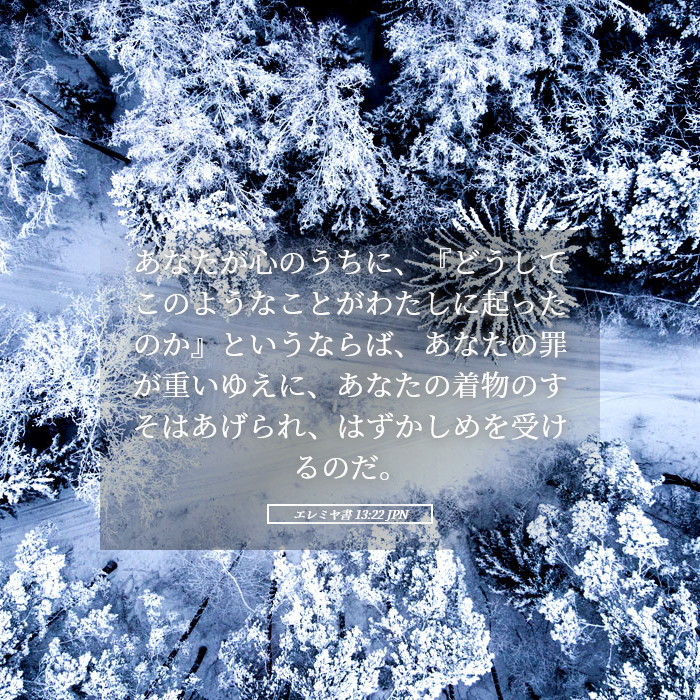 あなたが心のうちに、『どうして
このようなことがわたしに起った
のか』というならば、あなたの罪
が重いゆえに、あなたの着物のす
そはあげられ、はずかしめを受け
るのだ。
エレミヤ書 13:22 JPN